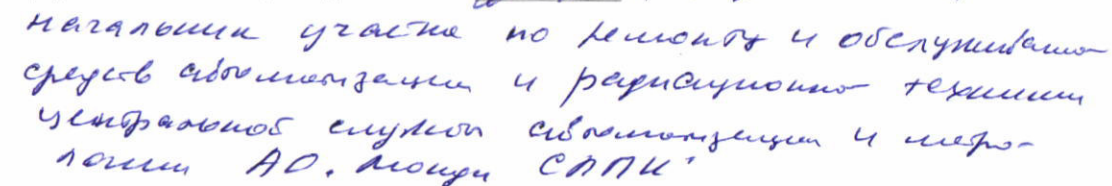 начальник участка по ремонту и обслуживанию
средств автоматизации и радиационно техники
центральной службы автоматизации и метро-
логии АО "Монди СЛПК"